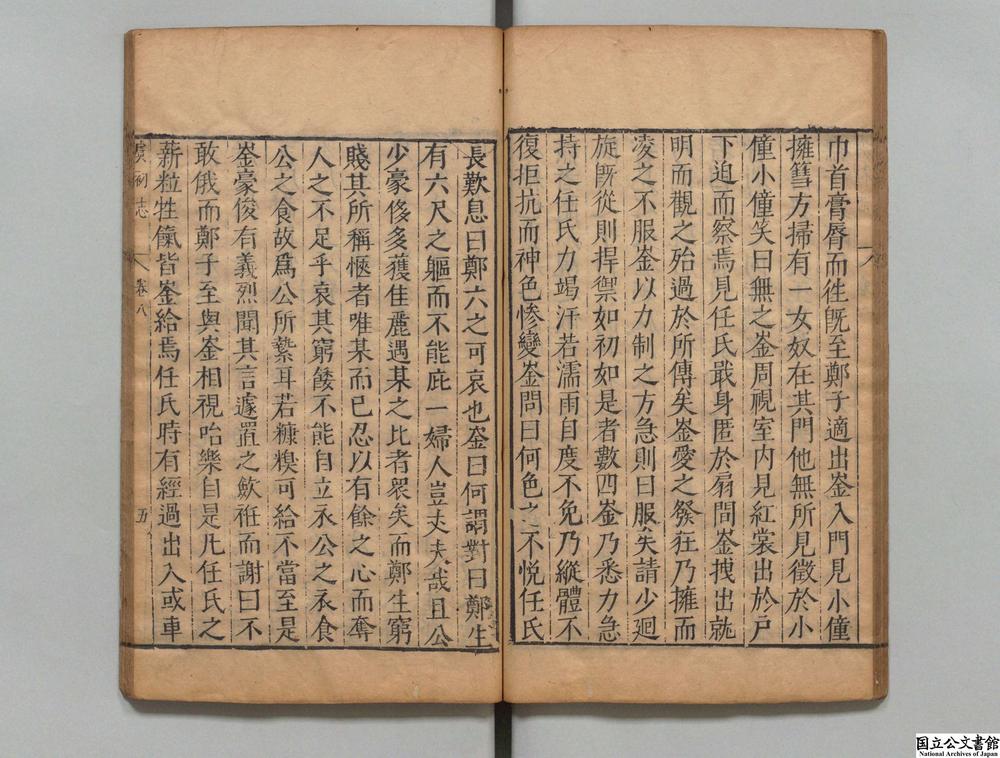 巾首膏脣而徃旣至鄭子適出崟入門見小僮
擁篲方掃有一女奴在其門他無所見徵於小
僮小僮笑曰無之崟周視室內見紅裳出於戶
下迫而察焉見任氏戢身匿於扇間崟拽出就
明而觀之殆過於所傳矣崟愛之發狂乃擁而
凌之不服崟以力制之方急則曰服矣請少廻
旋旣從則捍禦如初如是者數四崟乃悉力急
持之任氏力竭汗若濡雨自度不免乃縱體不
復拒抗而神色慘變崟問曰何色之不悦任氏
長歎息曰鄭六之可哀也崟曰何謂對曰鄭生
有六尺之軀而不能庇一婦人豈丈夫哉且公
少豪侈多獲佳麗遇某之比者衆矣而鄭生窮
賤其所稱愜者唯某而已忍以有餘之心而奪
人之不足乎哀其窮餒不能自立衣公之衣食
公之食故爲公所縶耳若糠糗可給不當至是
崟豪俊有義烈聞其言遽置之歛袵而謝曰不
敢俄而鄭子至與崟相視咍樂自是凡任氏之
薪粒牲餼皆崟給焉任氏時有經過出入或車
虞初志
卷八
五
国立公文書館
National Archives of Japan